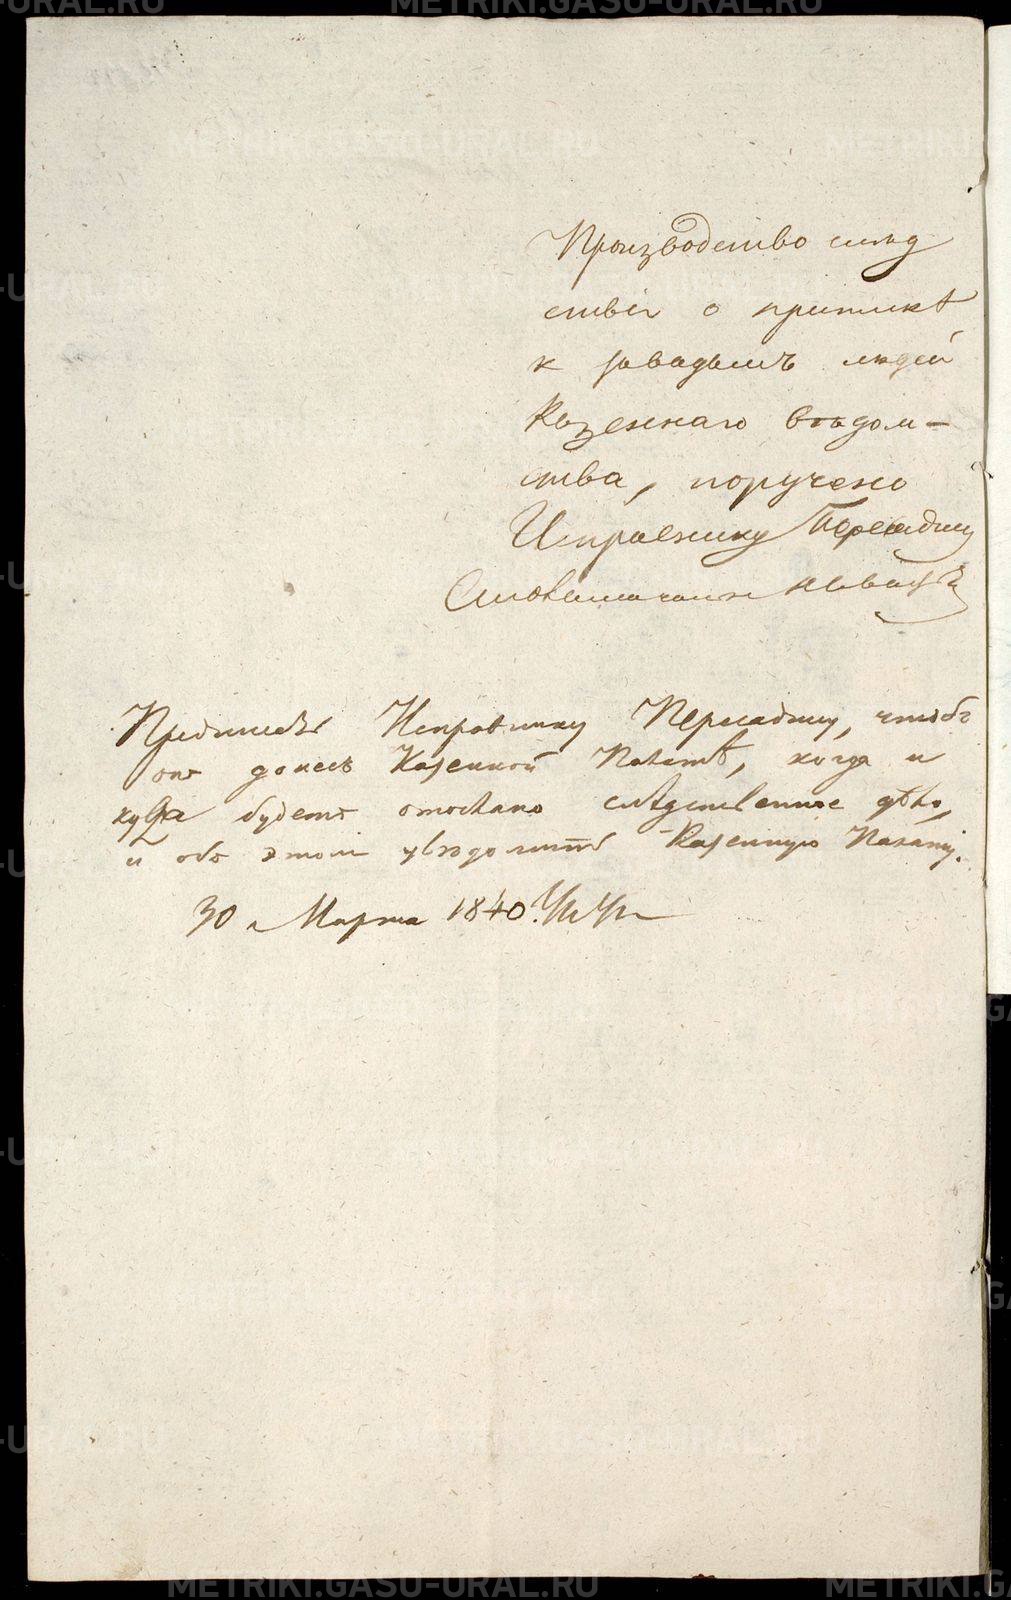 Производство слѣд
ствія о припискѣ
к заводамъ людей
Казеннаго вѣдом-
ства, поручено
Исправнику Пересадину
Столоначальникъ
Предписать Исправнику Пересадину, чтобъ
онъ донесъ Казенной Палатѣ, когда и
куда будетъ отослано слѣдственное дѣло,
и объ этомъ увѣдомить Казенную Палату.
30 Марта 1840.
METRIKI.GASU-URAL.RU